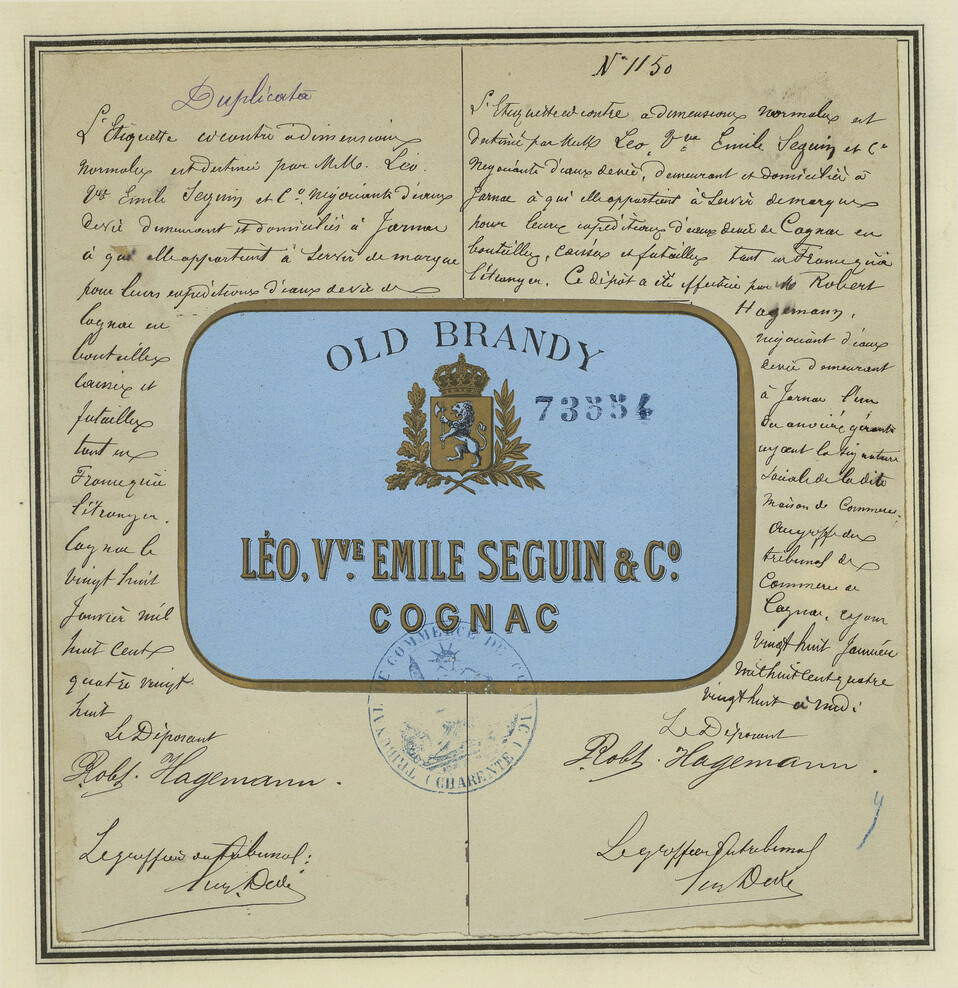 Duplicata
L'Etiquette ci contre a dimensions
normales est destinée par M.M. Léo.
Vve Emile Seguin et Co. Négociants d'eaux
de vie demeurant et domiciliés à Jarnac
à qui elle appartient à servir de marque
pour leurs expéditions d'eaux de vie de
Cognac en
bouteilles
caisses et
futailles
tant en
France qu'à
l'étranger.
Cognac le
vingt huit
Janvier mil
huit cent
quatre vingt
huit
Le Déposant
Robt. Hagemann.
Le greffier du tribunal:
No 1150
L'Etiquette ci contre a dimensions normales est
destinée par M.M. Léo, Vve Emile Seguin et Co
Négociants d'eaux de vie, demeurant et domiciliés à
Jarnac à qui elle appartient à servir de marque
pour leurs expéditions d'eaux de vie de Cognac en
bouteilles, caisses et futailles tant en France qu'à
l'étranger. Ce dépôt a été effectué par M. Robert
Hagemann,
négociant d'eaux
de vie demeurant
à Jarnac l'un
des associés gérants
ayant la signature
sociale de la dite
Maison de Commerce,
au greffe du
tribunal de
Commerce de
Cognac, ce jour
vingt huit Janvier
mil huit cent quatre
vingt huit à midi
Le Déposant
Robt. Hagemann.
Le greffier du tribunal
OLD BRANDY
73554
LÉO, VVE EMILE SEGUIN & Co.
COGNAC
TRIBUNAL DE COMMERCE DE COGNAC (CHARENTE)